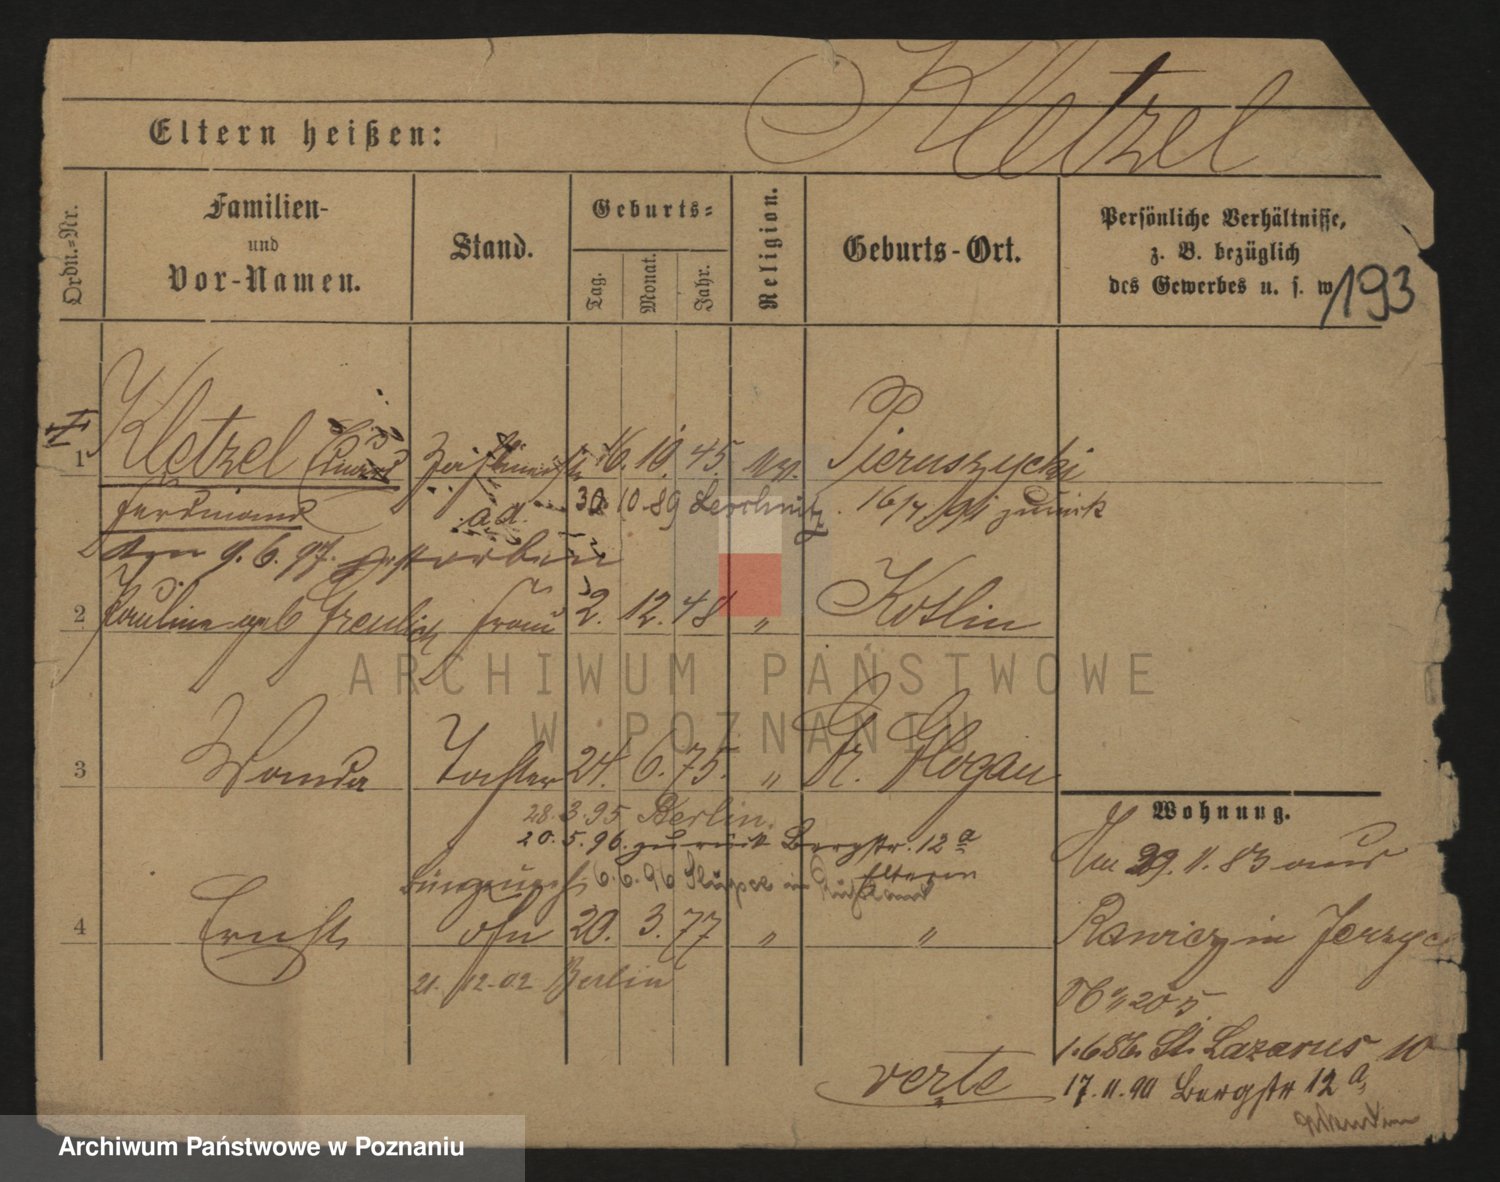 Kletzel
Eltern heißen:
Ordn.=Nr.
Familien-
und
Vor-Namen.
Stand.
Geburts=
Tag.
Monat.
Jahr.
Religion.
Geburts-Ort.
Persönliche Verhältnisse,
z. B. bezüglich
des Gewerbes u. s. w.
193
1 Kletzel 16. 10. 45. Pieruszycki
Ferdinand a.d. 30 10. 89 16/7 91 zurück
den 9. 6. 97. gestorben
2 Pauline geb Greulich Frau 2. 12. 48 " Koslin
ARCHIWUM PAŃSTWOWE
W POZNANIU
3 Wanda Tochter 24. 6. 75. " Gr. Glogau
28. 3. 95 Berlin.
20. 5. 96. zurück Bergstr. 12 a
Eltern
6. 6. 96 in Rußland
4 Ernst Sohn 20. 3. 77 " "
21. 12. 02 Berlin
Wohnung.
29. 11. 83 aus
Rawicz in Jerzyce
1. 6 86. St. Lazarus 10
17. 11. 90 Bergstr 12 a
verte
Archiwum Państwowe w Poznaniu